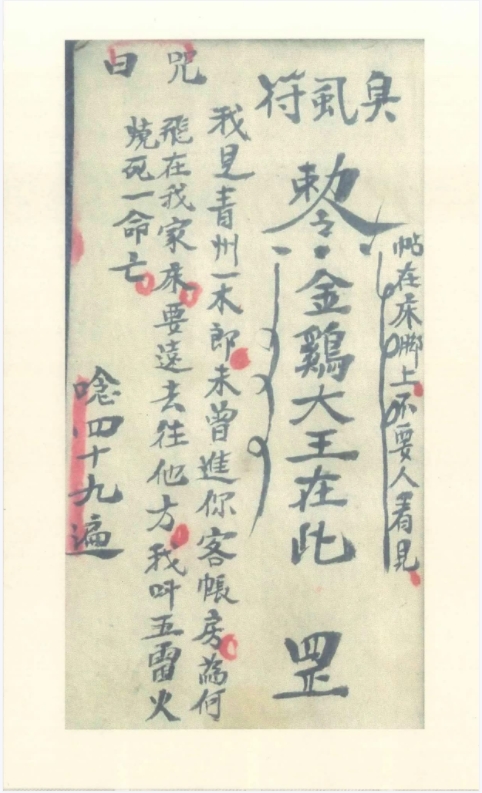 臭虱符
帖在床脚上不要人看見
敕令金鷄大王在此 罡
咒曰
我見青州一木郎未曾進你客帳房為何
飛在我家床要遠去往他方我叫五雷火
燒死一命亡
唸四十九遍